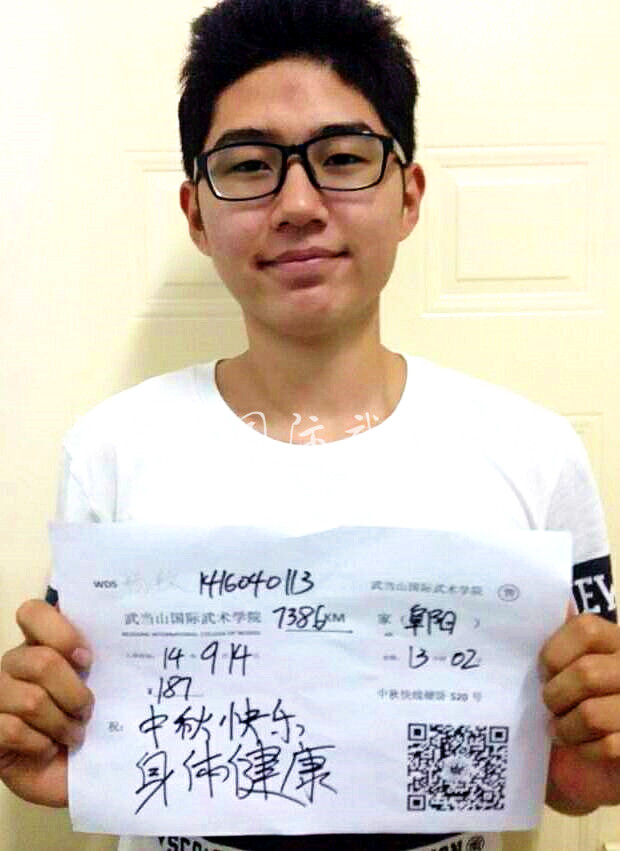 国际武
WDS 1416040113 武当山国际武术学院 售
武当山国际武术学院 7386KM 家(阜阳)
WUDANG INTERNATIONAL COLLEGE OF WUSHU
14 9 14 13 02
¥187 中秋快线硬卧 520 号
祝: 中秋快乐
身体健康
EW